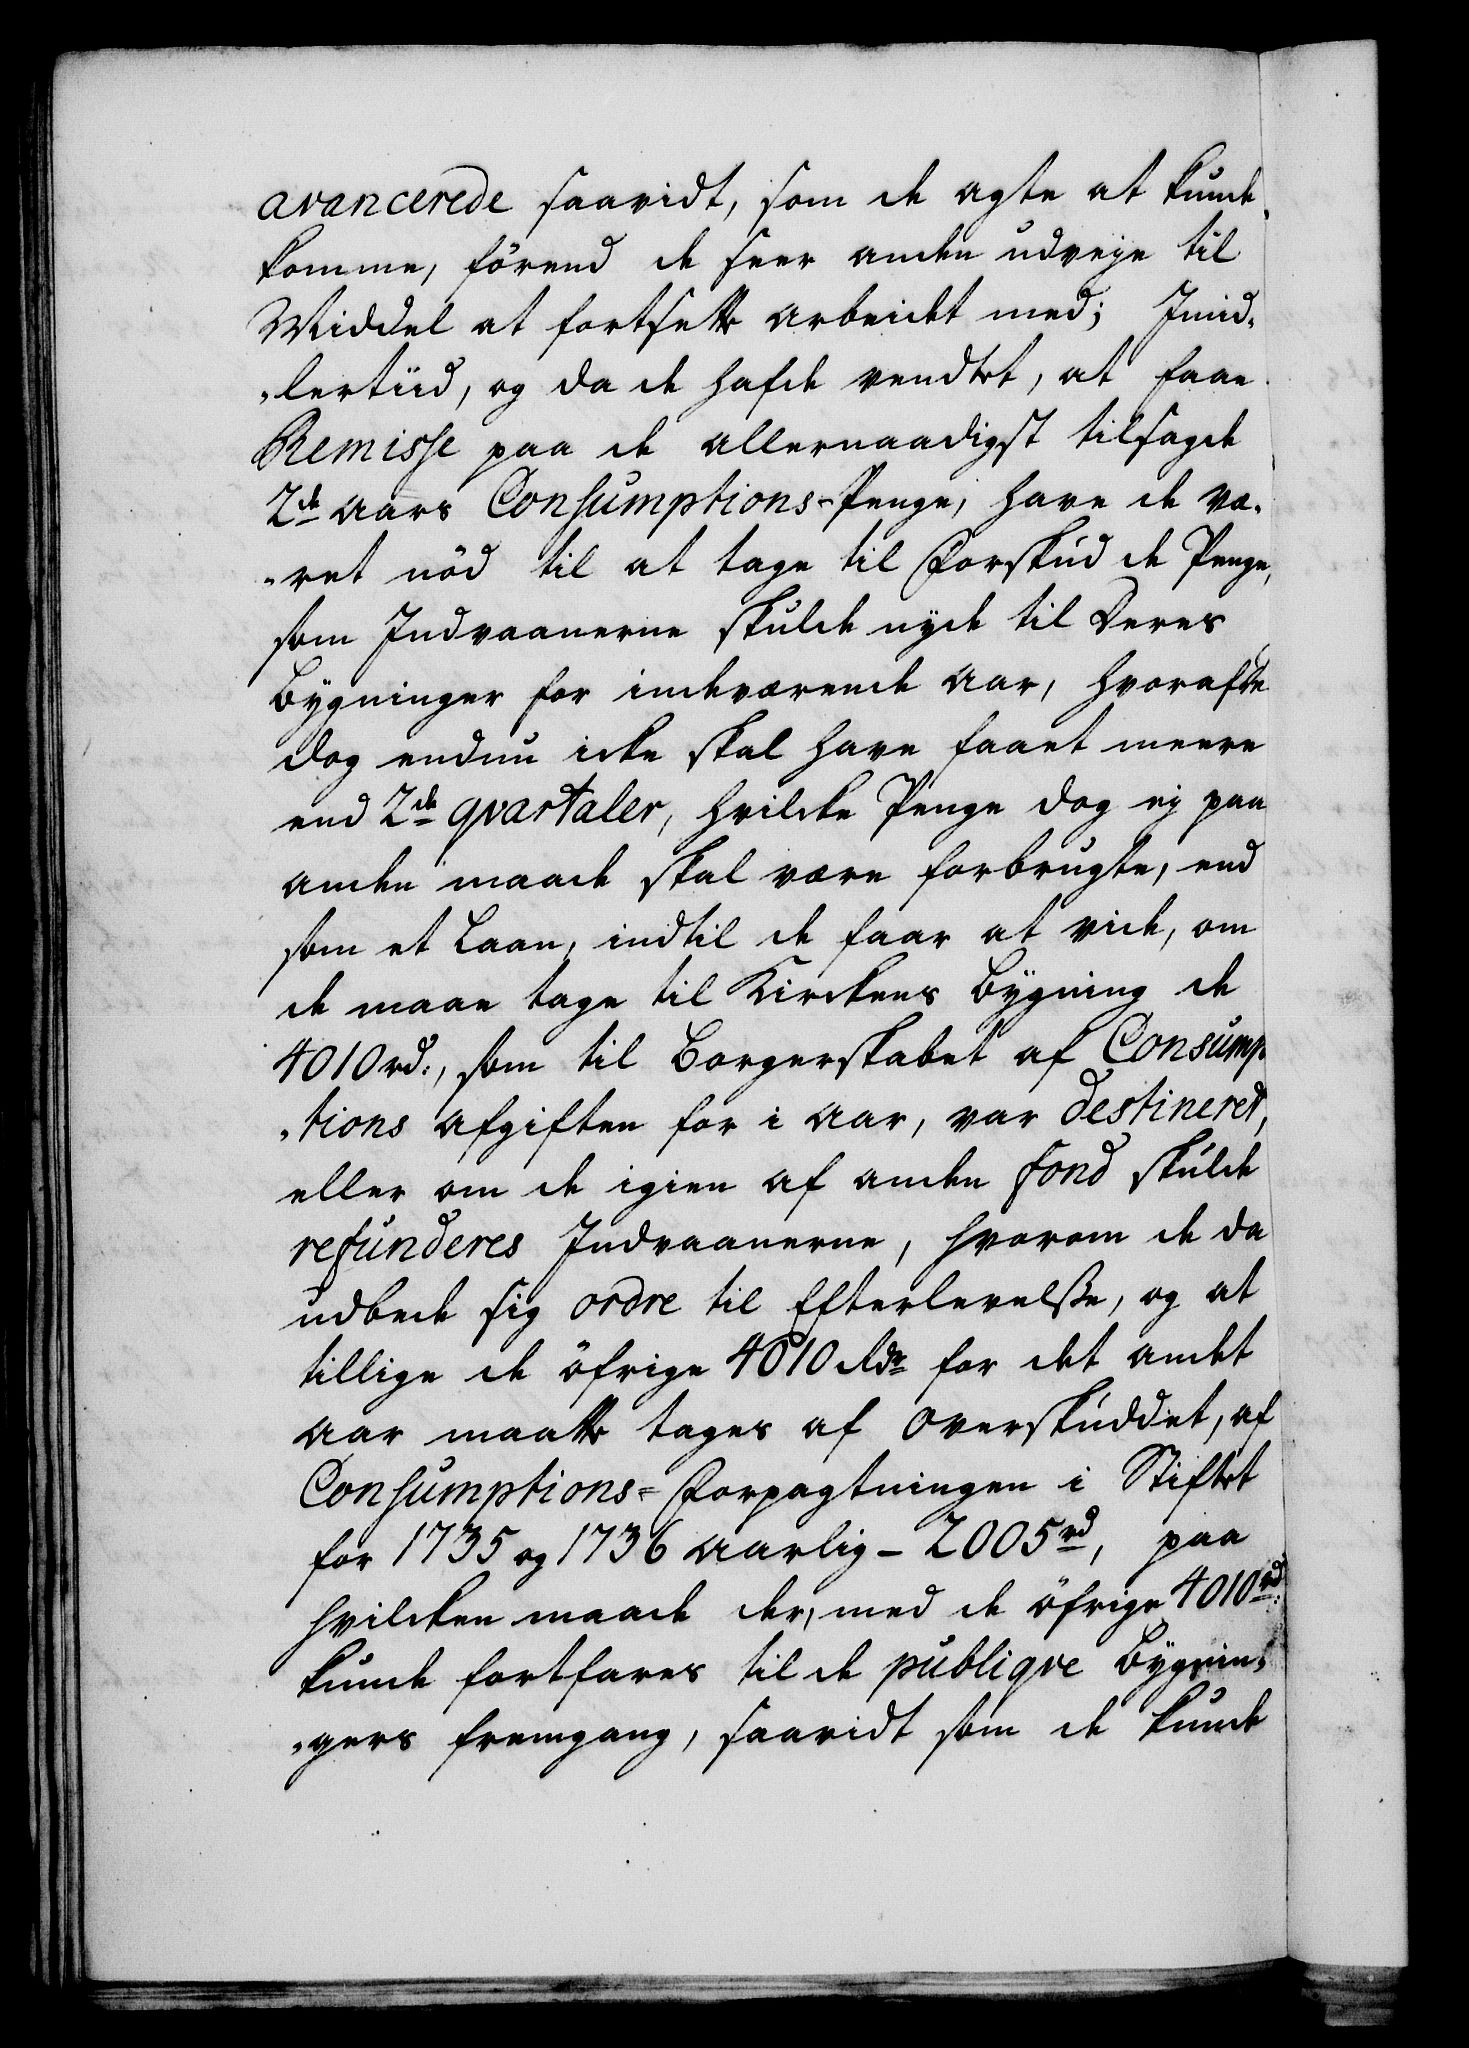 avancerede saavidt, som de agte at kunde
komme, förend de seer anden udveje til
Middel at fortsette arbeidet med; Imid,,
,,lertiid, og da de hafde vendtet, at faae
Remisse paa de allernaadigst tilsagde
2de Aars Consumptions-Penge, have de væ,,
,,ret nöd til at tage til Forskud de Penge,
som Indvaanerne skulde nyde til Deres
Bygninger for indeværende Aar, hvoraf de
dog endnu icke skal have faaet meere
end 2de qvartaler, hvilcke Penge dog ej paa
anden maade skal være forbrugte, end
som et Laan, indtil de faar at vide, om
de maae tage til Kirckens Bygning de
4010 rd:, som til Borgerskabet af Consump,,
,,tions Afgiften for i Aar, var destineret,
eller om de igien af anden Fond skulde
refunderes Indvaanerne, hvorom de da
udbede sig ordre til Efterlevelsse, og at
tillige de öfrige 4010 Rdr for det andet
Aar maatte tages af Overskuddet, af
Consumptions-Forpagtningen i Stiftet
for 1735 og 1736 aarlig - 2005 rd, paa
hvilcken maade der, med de öfrige 4010 rd:
kunde fortfares til de publiqve Bygnin,,
,,gers fremgang, saavidt som de kunde